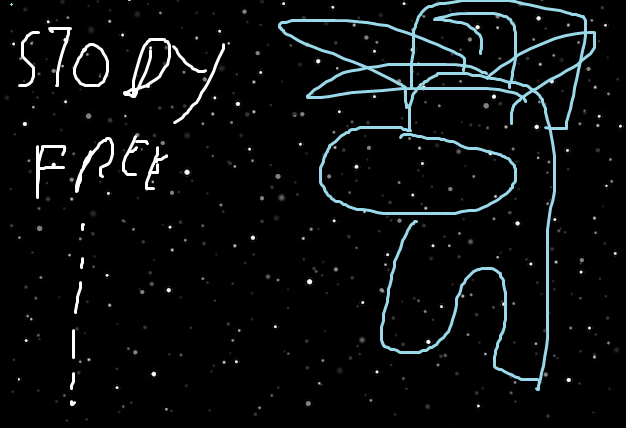 STODY
FREE